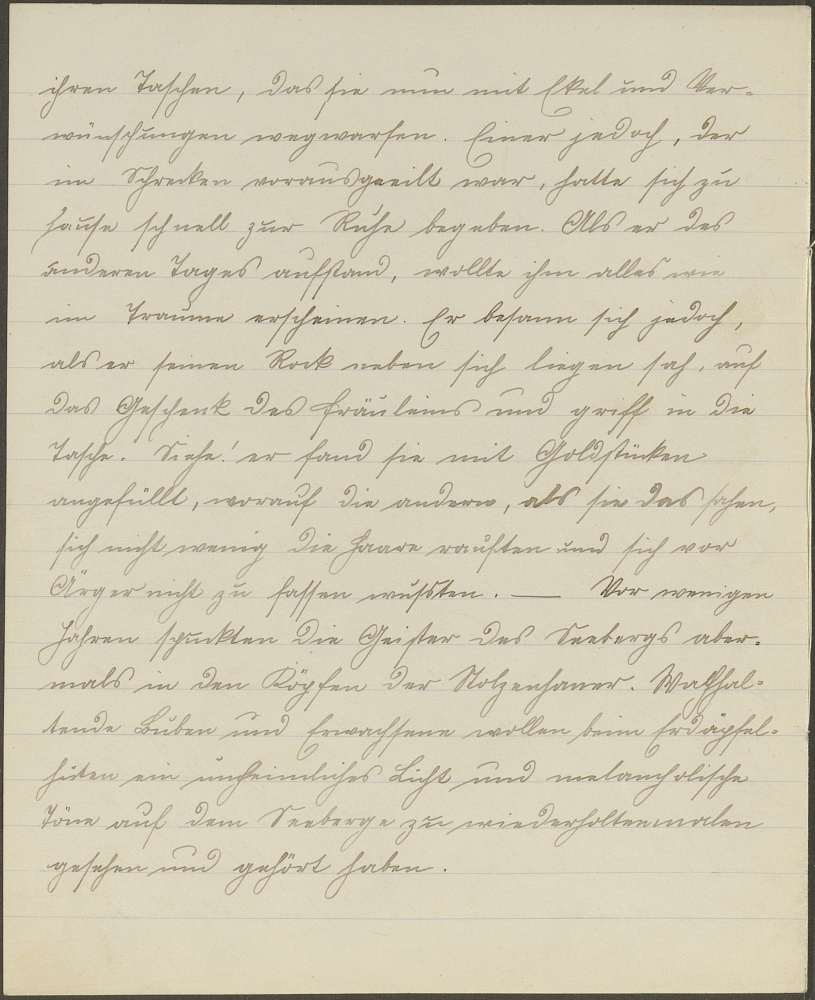 ihren Taschen, das sie nun mit Ekel und Ver-
wünschungen wegwarfen. Einer jedoch, der
im Schrecken vorausgeeilt war, hatte sich zu
Hause schnell zur Ruhe begeben. Als er des
anderen Tages aufstand, wollte ihm alles wie
im Traume erscheinen. Er besann sich jedoch,
als er seinen Rock neben sich liegen sah, auf
das Geschenk des Fräuleins und griff in die
Tasche. Siehe! er fand sie mit Goldstücken
angefüllt, worauf die andern, als sie das sahen,
sich nicht wenig die Haare rauften und sich vor
Ärger nicht zu fassen wußten. — Vor wenigen
Jahren spuckten die Geister des Seebergs aber-
mals in den Köpfen der Stolzenhaner. Wachhal-
tende Buben und Erwachsene wollen beim Erdäpfel-
hüten ein unheimliches Licht und melancholische
Töne auf dem Seeberge zu wiederholtenmalen
gesehen und gehört haben.